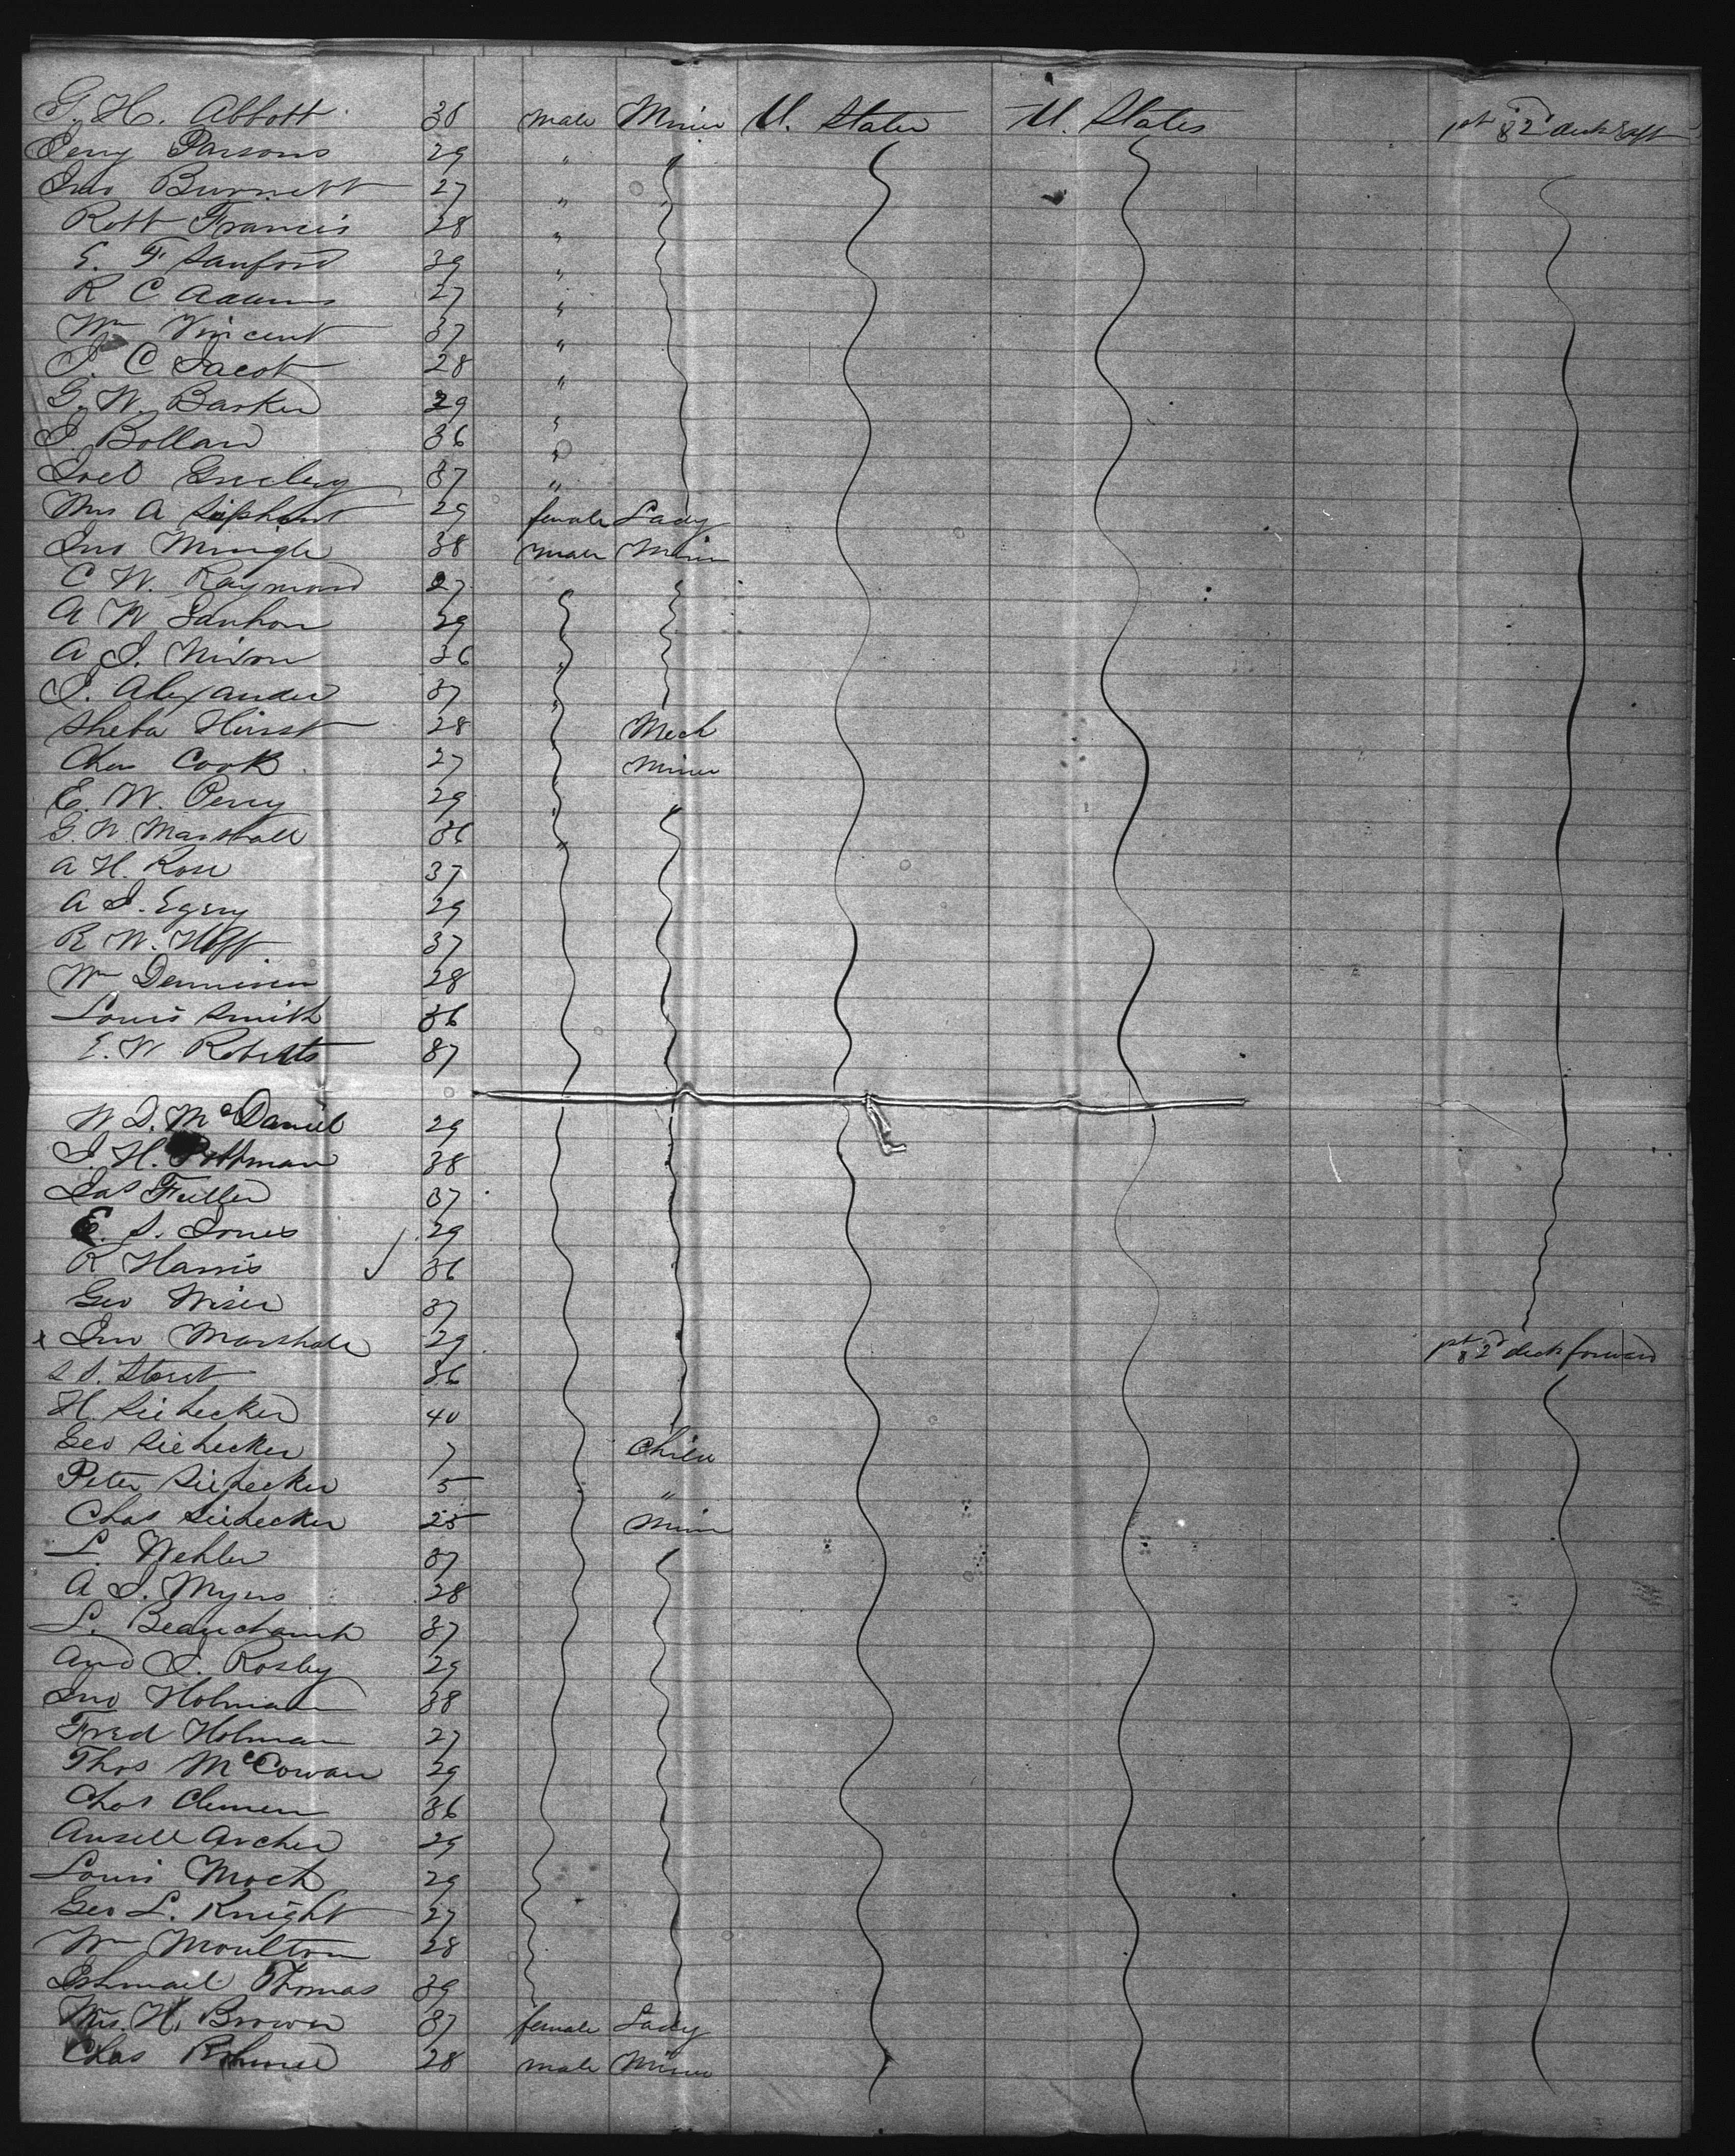 G. H. Abbott 36 male Miner U. States U. States pt & 2d deck & aft
Perry Parsons 29 "
Jno Burnett 27 "
Robt Francis 28 "
E. F. Sanford 39 "
R C Adams 27 "
Wm Vincent 37 "
J. C Jacob 28 "
G. W. Barker 29 "
J. Bollan 36 "
Joel Greeley 37 "
Mrs A 29 female Lady
Jno Mingle 38 male Miner
C W. Raymond 27
A W 29
A J. Nixon 36 "
J. Alexander 37 "
Sheba Hurst 28 Mech
Chas Cook 27 Miner
E. W. Perry 29 "
G. W. Marshall 36 "
A H. Rose 37
A J. Egery 29
R W. Hoff 37
Wm Dennison 28
Louis Smith 36
E. W Roberts 37
W J. McDaniel 29
J. H. Pittman 38
Jas Fuller 37
E. S. Jones 29
R Harris 36
Geo Wiser 37
x Jno Marshall 29 pt & 2d deck forward
S. S. Stout 36
H. Siebecker 40
Geo Siebecker 7 Child
Peter Siebecker 5 "
Chas Siebecker 25 Miner
L. Wehler 37
A J. Myers 28
L. Beauchamp 37
And J. Rosby 29
Jno Holman 38
Fred Holman 27
Thos McCowan 29
Chas Clemen 36
Ansell Archer 29
Louis Moch 29
Geo L. Knight 27
Wm Moulton 28
Ishmael Thomas 39
Mrs. H. Brown 37 female Lady
Chas 28 male Miner